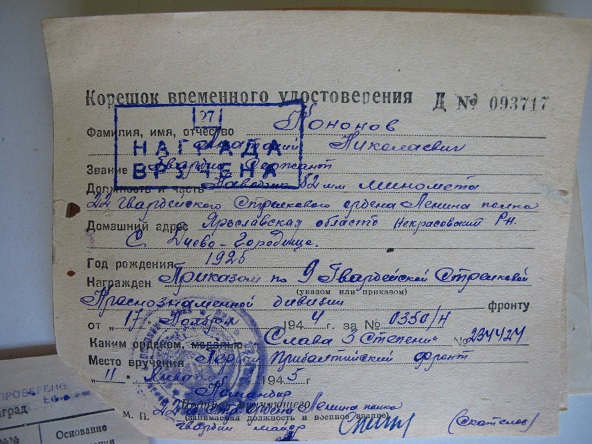 Корешок временного удостоверения Д № 093717
27
Фамилия, имя, отчество Кононов
Николаевич
НАГРАДА
ВРУЧЕНА
Звание Гвардии Сержант
Должность и часть Наводчик 82 мм миномета
22 Гвардейского Стрелкового ордена Ленина полка
Домашний адрес Ярославская область Некрасовский Рн.
С. Диево-Городище.
Год рождения 1925
Награжден Приказом по 9 Гвардейской Стрелковой
(указом или приказом)
Краснознаменной дивизии фронту
от "17" Ноября 1944 г. за № 0350/н
Каким орденом, медалью Слава 3 Степени № 234424
Место вручения Прибалтийский фронт
"11" 1945 г
Командир
22 ордена Ленина полка
М. П. (занимаемая должность и военное звание)
гвардии майор
ПРОВЕРЕНО
Основание